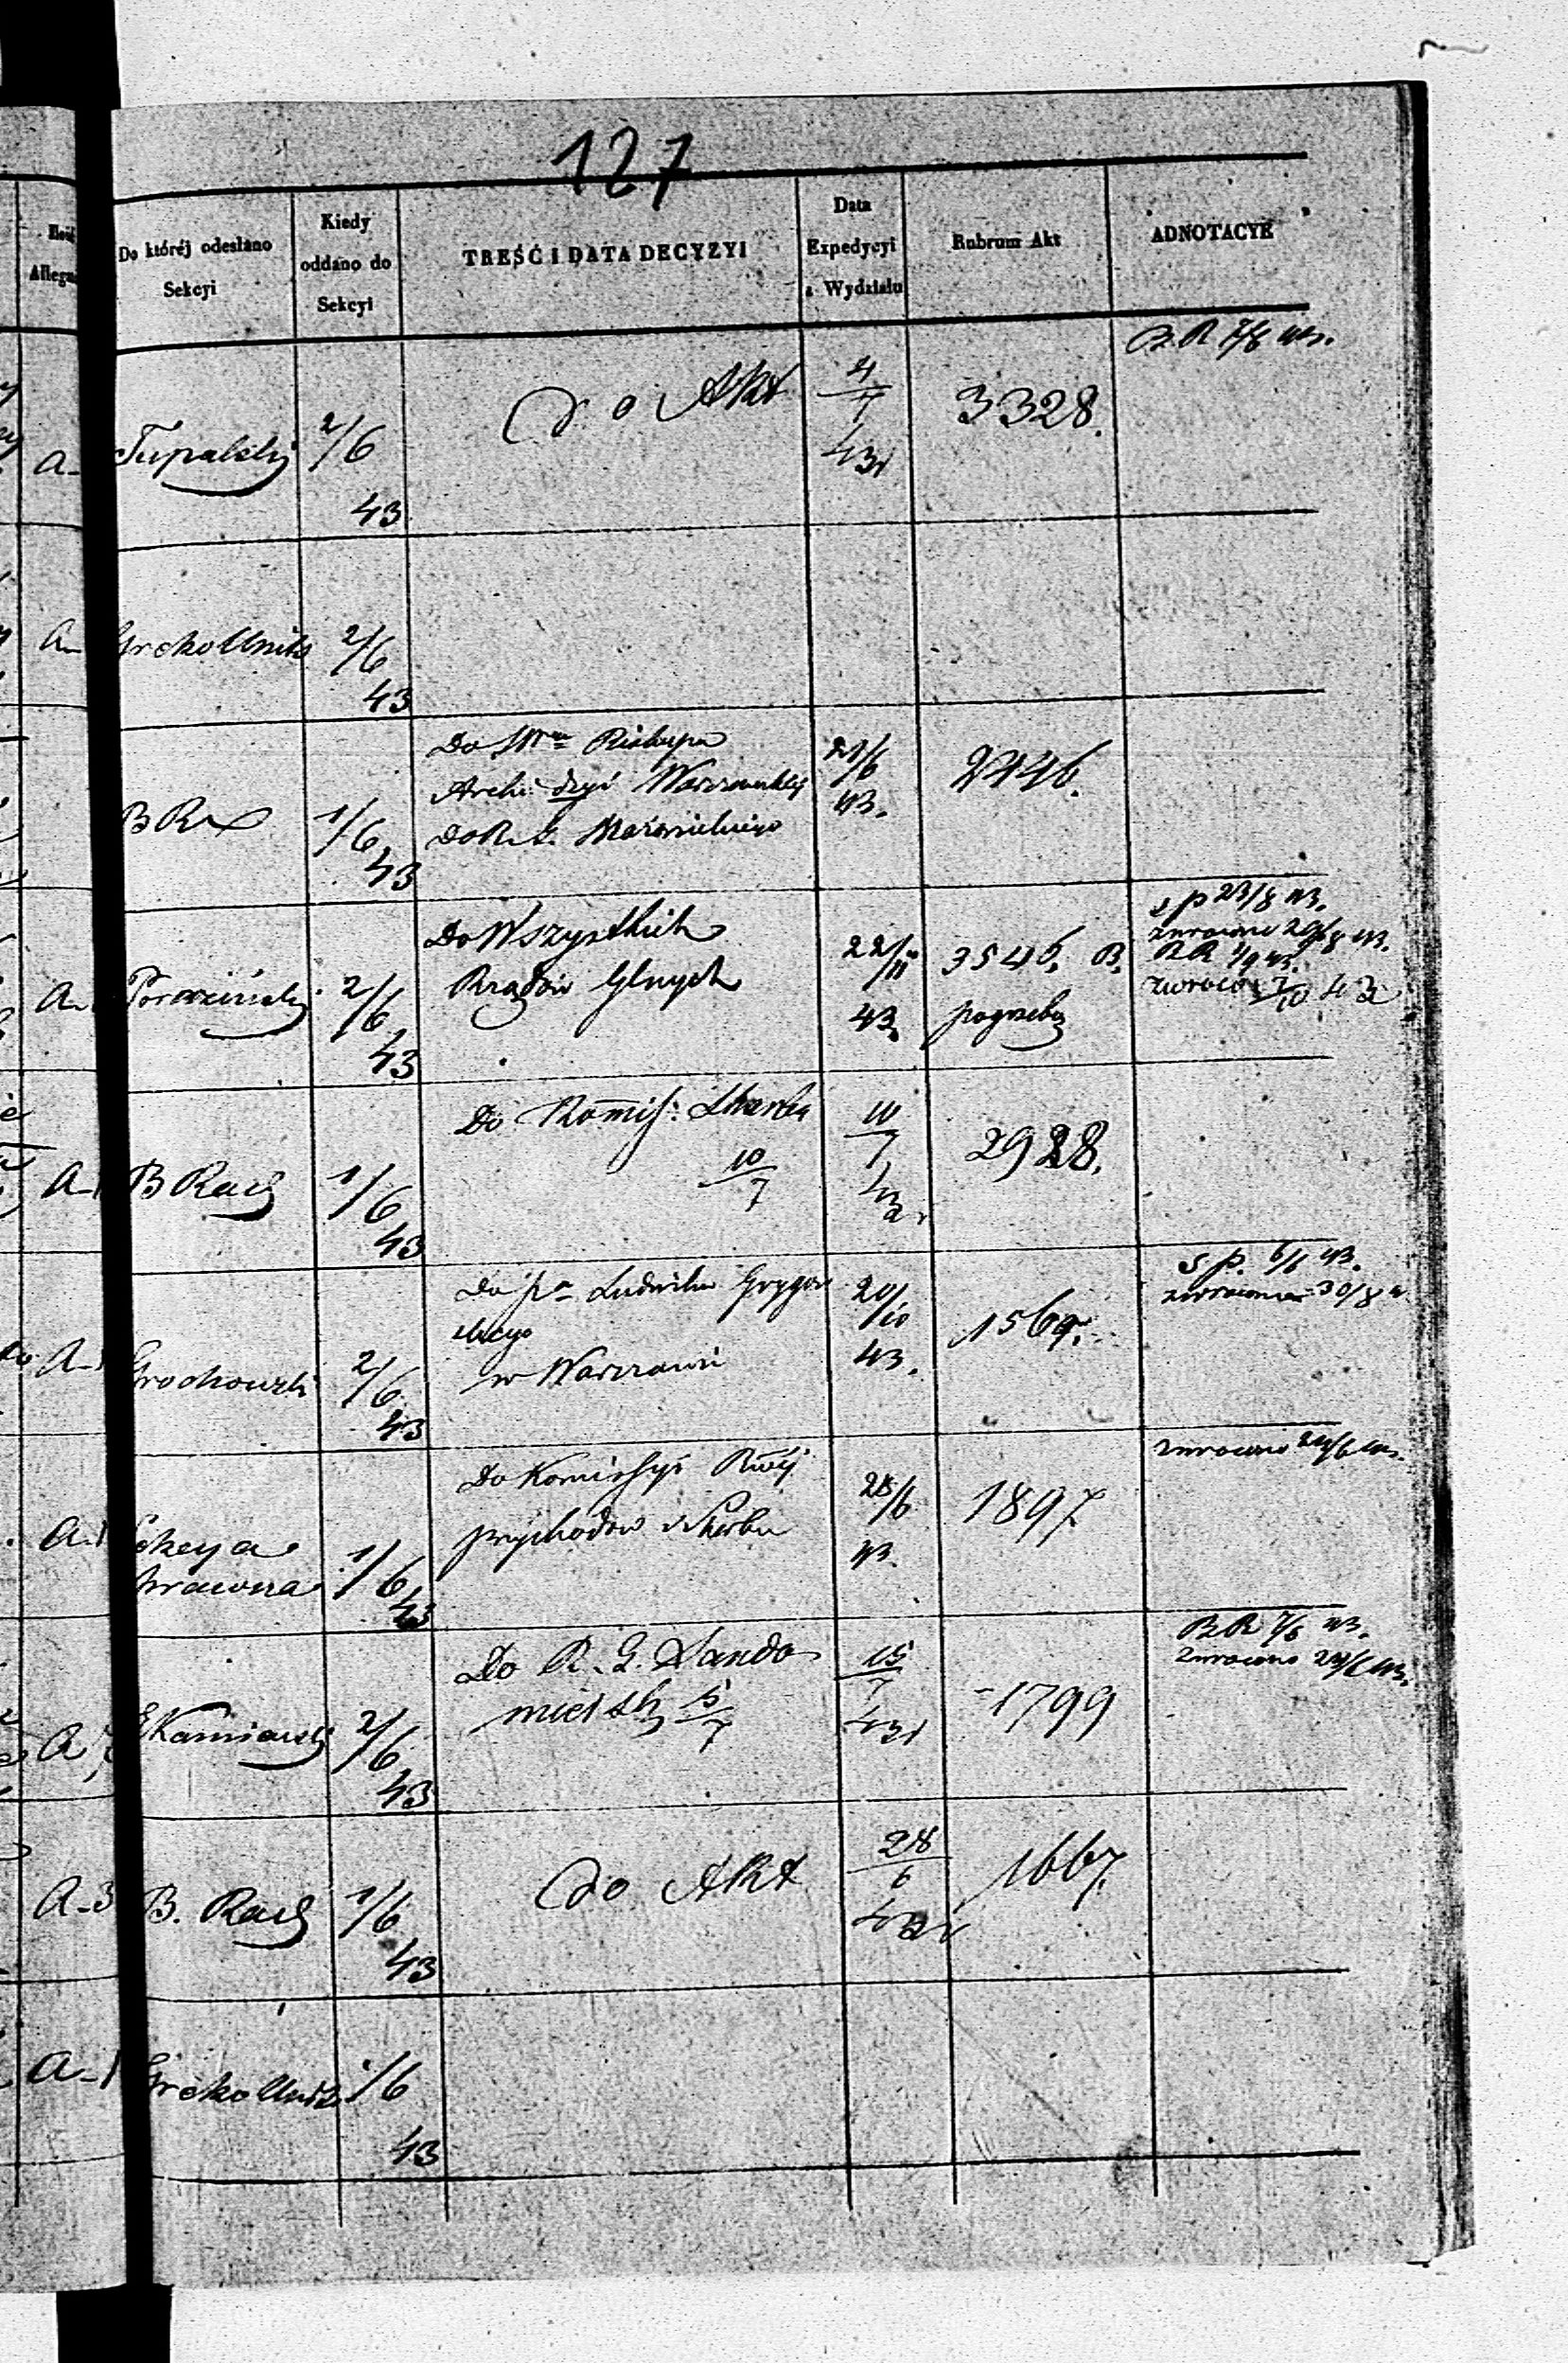 127
Allega
Do któréj odesłano
Sekcyi
Kiedy
oddano do
Sekcyi
TREŚĆ I DATA DECYZYI
Data
Expedycyi
z Wydziału
Rubrum Akt
ADNOTACYE
A- Tupalski 2/6 43
do Akt
4/7 43
3328.
BR 7/6 43.
A- Greko Units 2/6 43
BR 1/6 43
Do
Archi dyi Warszawskiej
Do R. G. Mazowieckiego
21/6 43.
2446.
A- 2/6 43
Do Wszystkich
Rządów Glnych
22/11 43
3546. B.
pogrzeby
s p 23/8 43.
zwrócono 29/8 43.
BR 1/9 43.
43
A-1 B Rach 1/6 43
Do Komis: Skarbu
10/7
10/7
2928.
A-1 Grochowski 2/6 43
Do Ludwika Grygow
skiego
w Warszawie
20/10 43.
1569.
s p. 6/6 43.
zwrócono 30/8
A-1 1/6 43
Do Komissyi Rwéj
przychodów i Skarbu
28/6 43.
1897
zwrócono 24/6 43.
A 7 Kamieński 2/6 43
Do R. G. Sando
miersk 15/7
15/7 43
1799
BR 7/6 43.
zwrócono 24/6 43.
A-3 B. Rach 1/6 43
do Akt
28/6
1667.
A-1 Greko Units 1/6 43